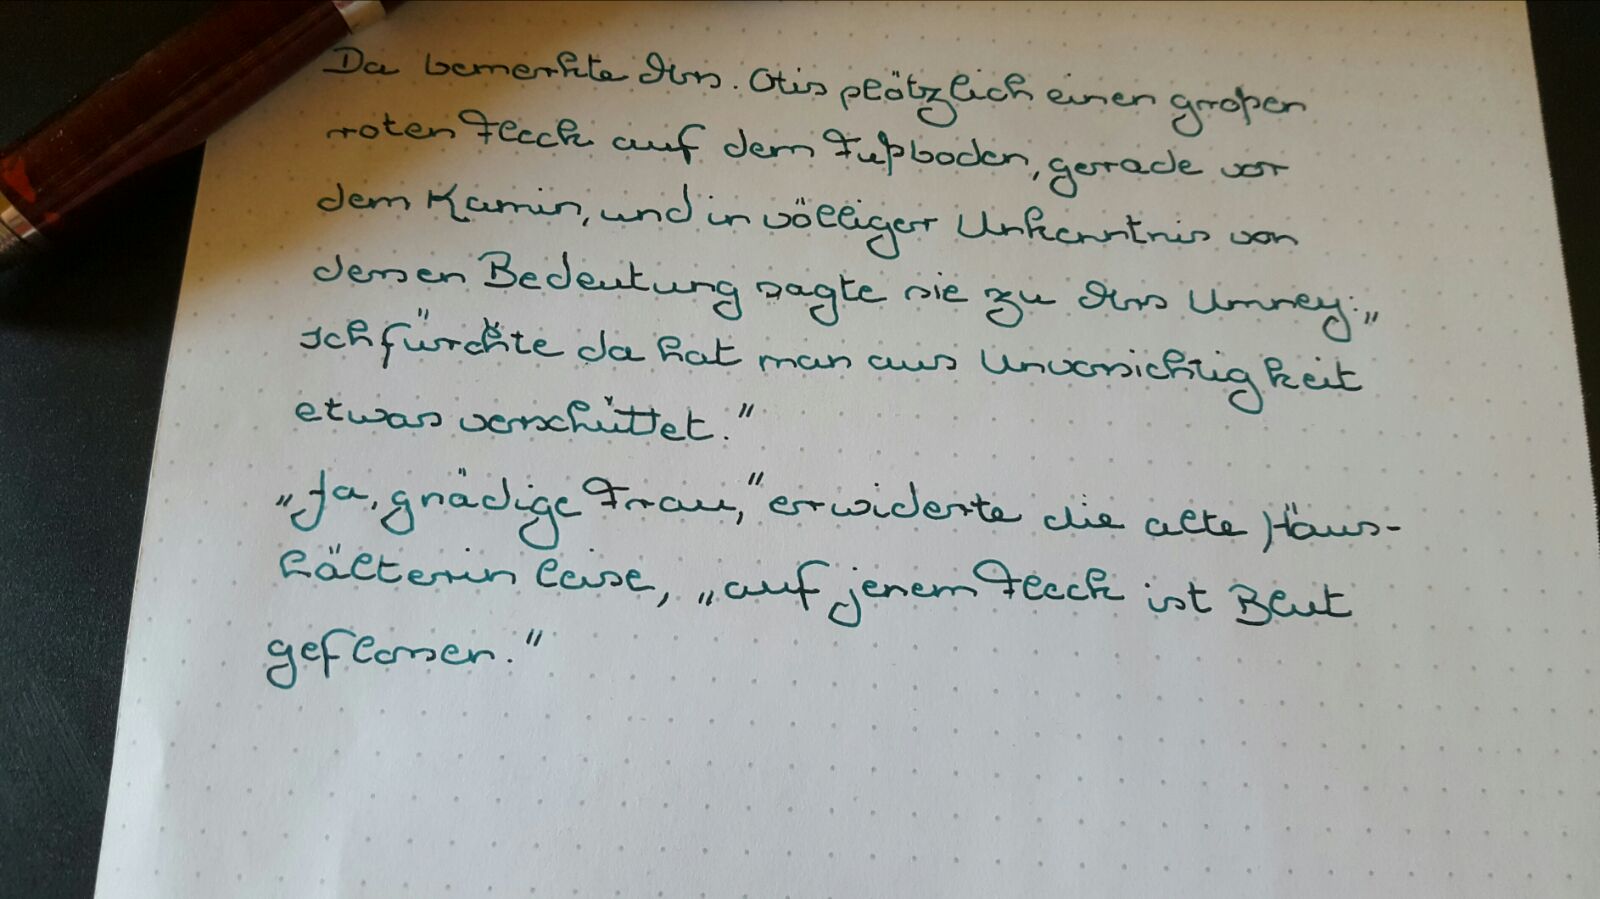 Da bemerkte Mrs. Otis plötzlich einen großen
roten Fleck auf dem Fußboden, gerade vor
dem Kamin, und in völliger Unkenntnis von
dessen Bedeutung sagte sie zu Mrs Umney: „
Ich fürchte da hat man aus Unvorsichtigkeit
etwas verschüttet."
„Ja, gnädige Frau," erwiderte die alte Haus-
hälterin leise, „auf jenem Fleck ist Blut
geflossen."